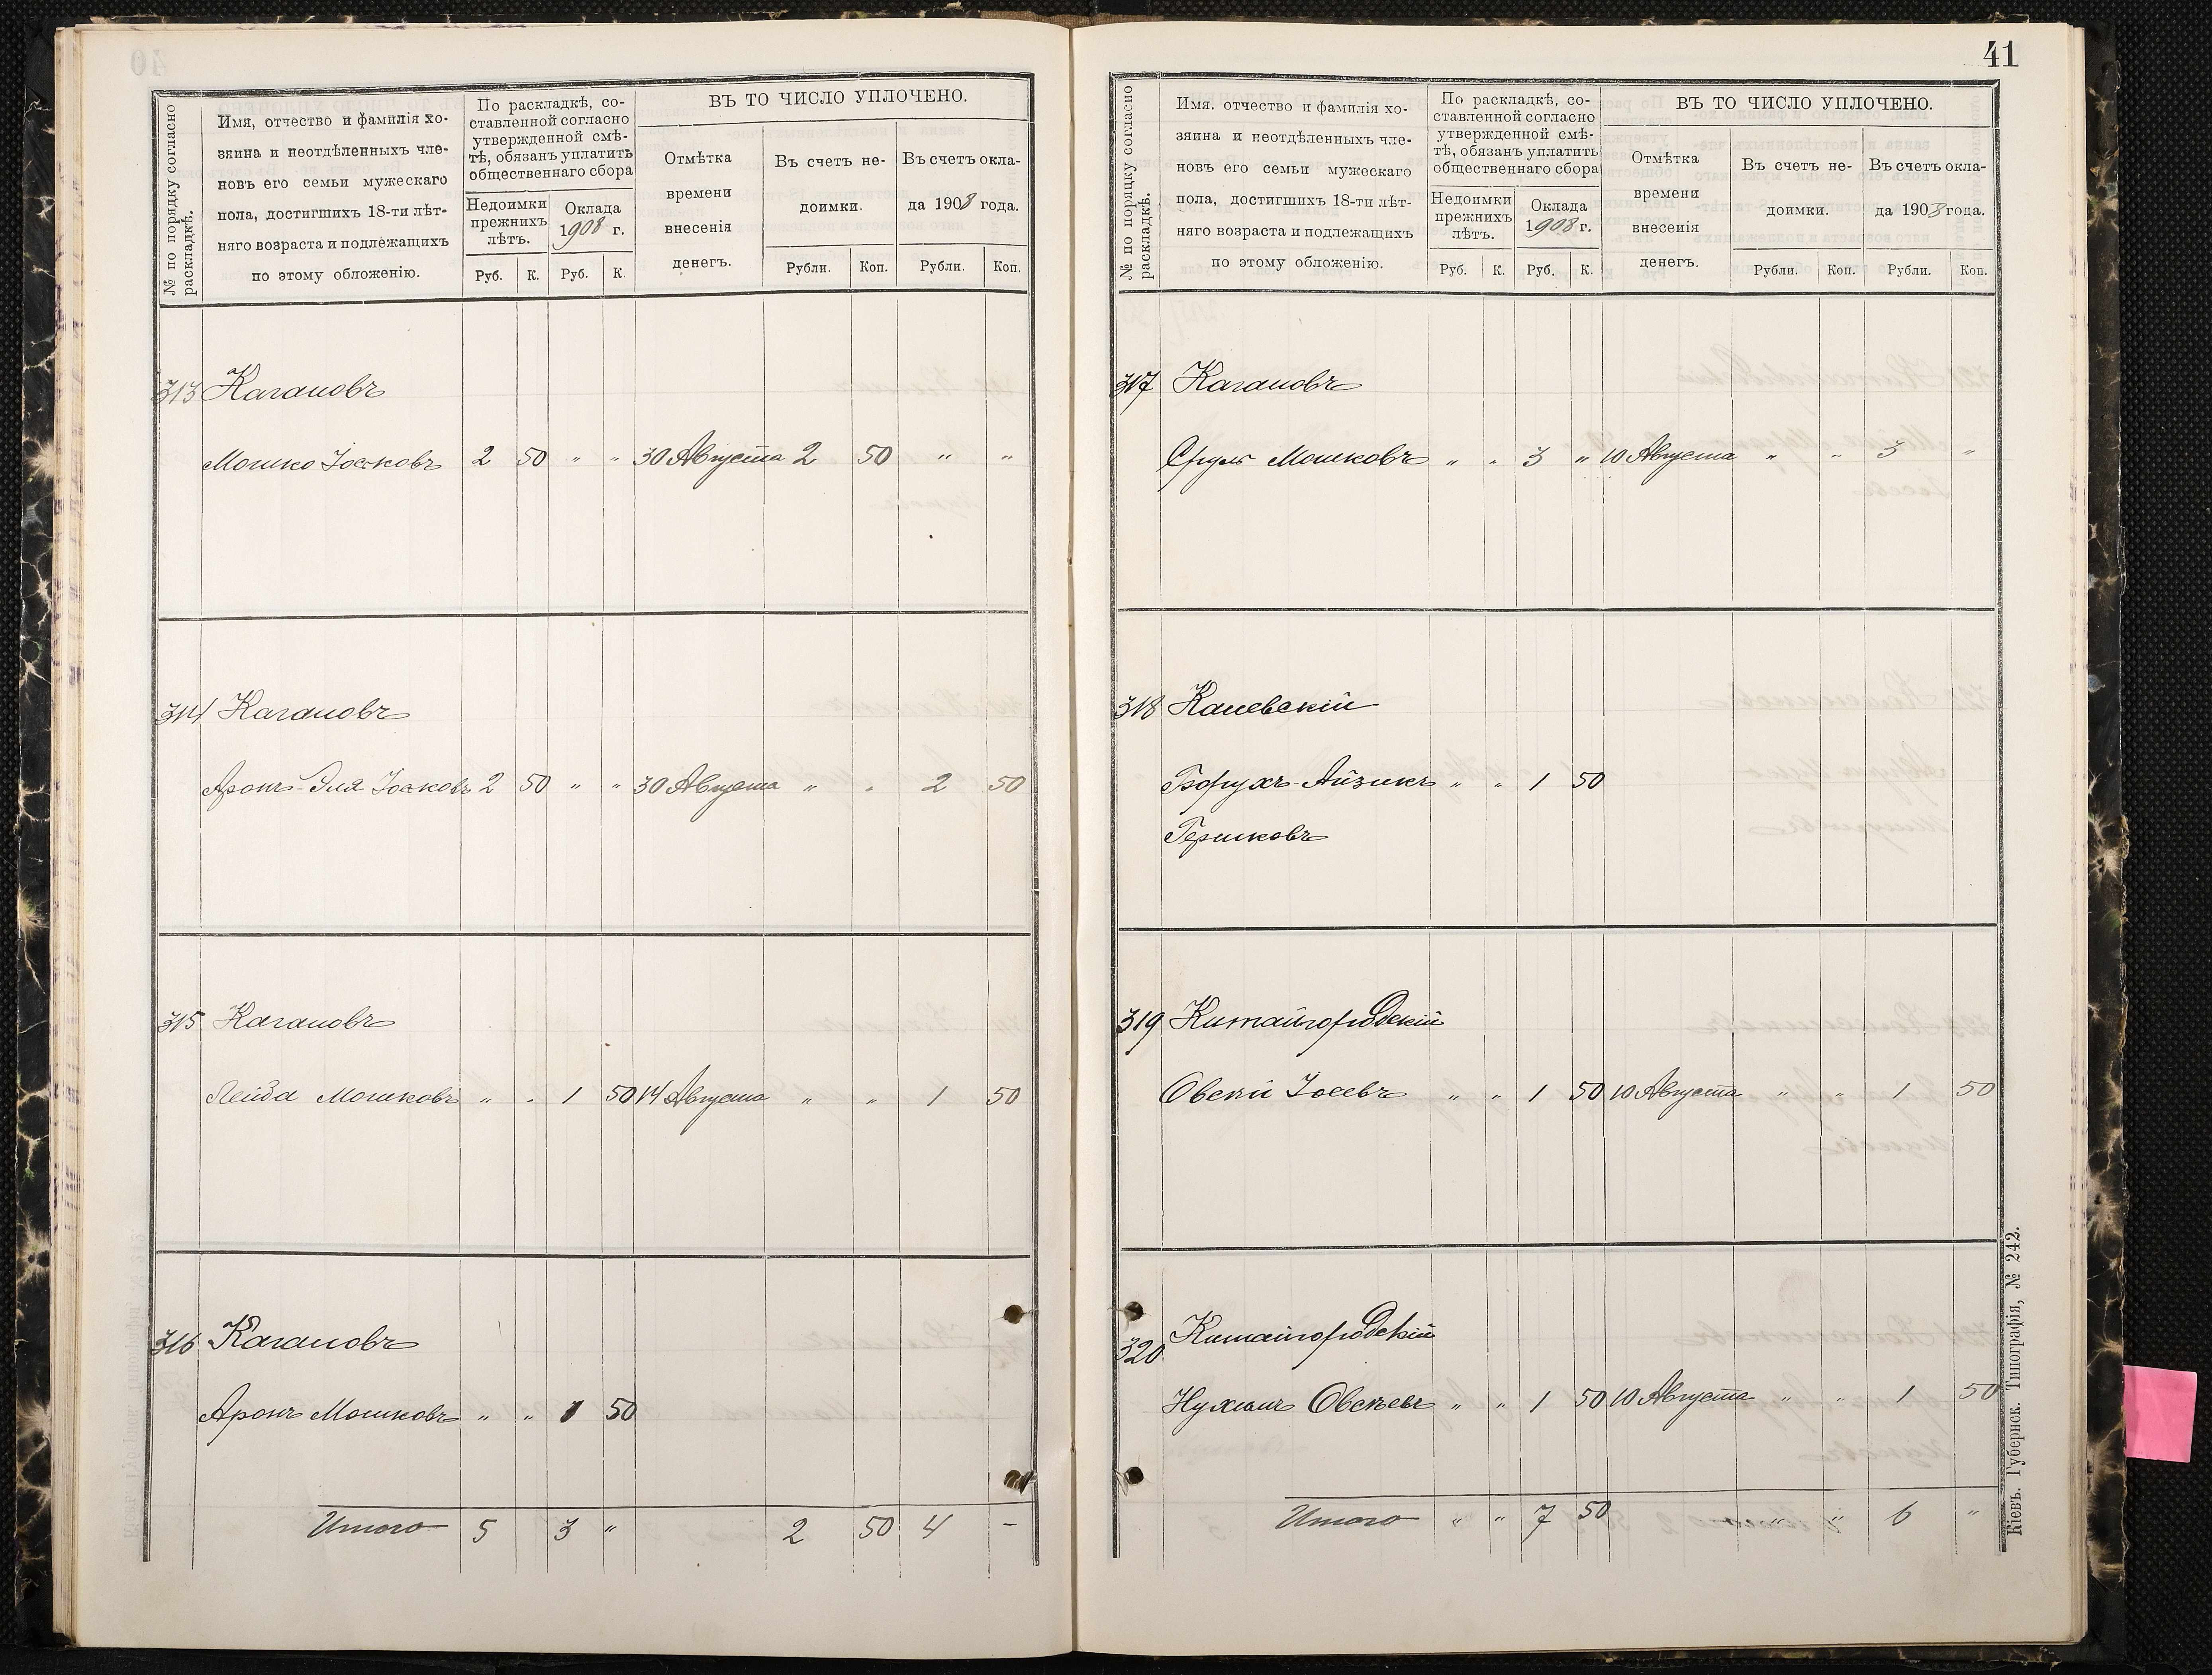 № по порядку согласно
раскладкѣ.
Имя, отчество и фамилія хо-
зяина и неотдѣленныхъ чле-
новъ его семьи мужескаго
пола, достигшихъ 18-ти лѣт-
няго возраста и подлежащихъ
по этому обложенію.
По раскладкѣ, со-
ставленной согласно
утвержденной смѣ-
тѣ, обязанъ уплатить
общественнаго сбора
Недоимки
прежнихъ
лѣтъ.
Оклада
1908 г.
Руб. К. Руб. К.
ВЪ ТО ЧИСЛО УПЛОЧЕНО.
Отмѣтка
времени
внесенія
денегъ.
Въ счетъ не-
доимки.
Въ счетъ окла-
да 1908 года.
Рубли. Коп. Рубли. Коп.
313 Кагановъ
Мошко Іосковъ 2 50 " " 30 Августа 2 50 " "
314 Кагановъ
Аронъ-Эля Іосковъ 2 50 " " 30 Августа " " 2 50
315 Кагановъ
Лейба Мошковъ " " 1 50 14 Августа " " 1 50
316 Кагановъ
Аронъ Мошковъ " " 1 50
Итого 5 3 " 2 50 4 -
41
№ по порядку согласно
раскладкѣ.
Имя. отчество и фамилія хо-
зяина и неотдѣленныхъ чле-
новъ его семьи мужескаго
пола, достигшихъ 18-ти лѣт-
няго возраста и подлежащихъ
по этому обложенію.
По раскладкѣ, со-
ставленной согласно
утвержденной смѣ-
тѣ, обязанъ уплатить
общественнаго сбора
Недоимки
прежнихъ
лѣтъ.
Оклада
1908 г.
Руб. К. Руб. К.
ВЪ ТО ЧИСЛО УПЛОЧЕНО.
Отмѣтка
времени
внесенія
денегъ.
Въ счетъ не-
доимки.
Въ счетъ окла-
да 1908 года.
Рубли. Коп. Рубли. Коп.
317 Кагановъ
Сруль Мошковъ " " 3 " 10 Августа " " 3 "
318 Каневскій
Борухъ-Айзикъ " " 1 50
Гершковъ
319 Китайгородскій
Овсѣй Іосевъ " " 1 50 10 Августа " " 1 50
320 Китайгородскій
Нухимъ Овсѣевъ " " 1 50 10 Августа " " 1 50
Итого " " 7 50 " " 6 "
Кіевъ. Губернск. Типографія, № 242.